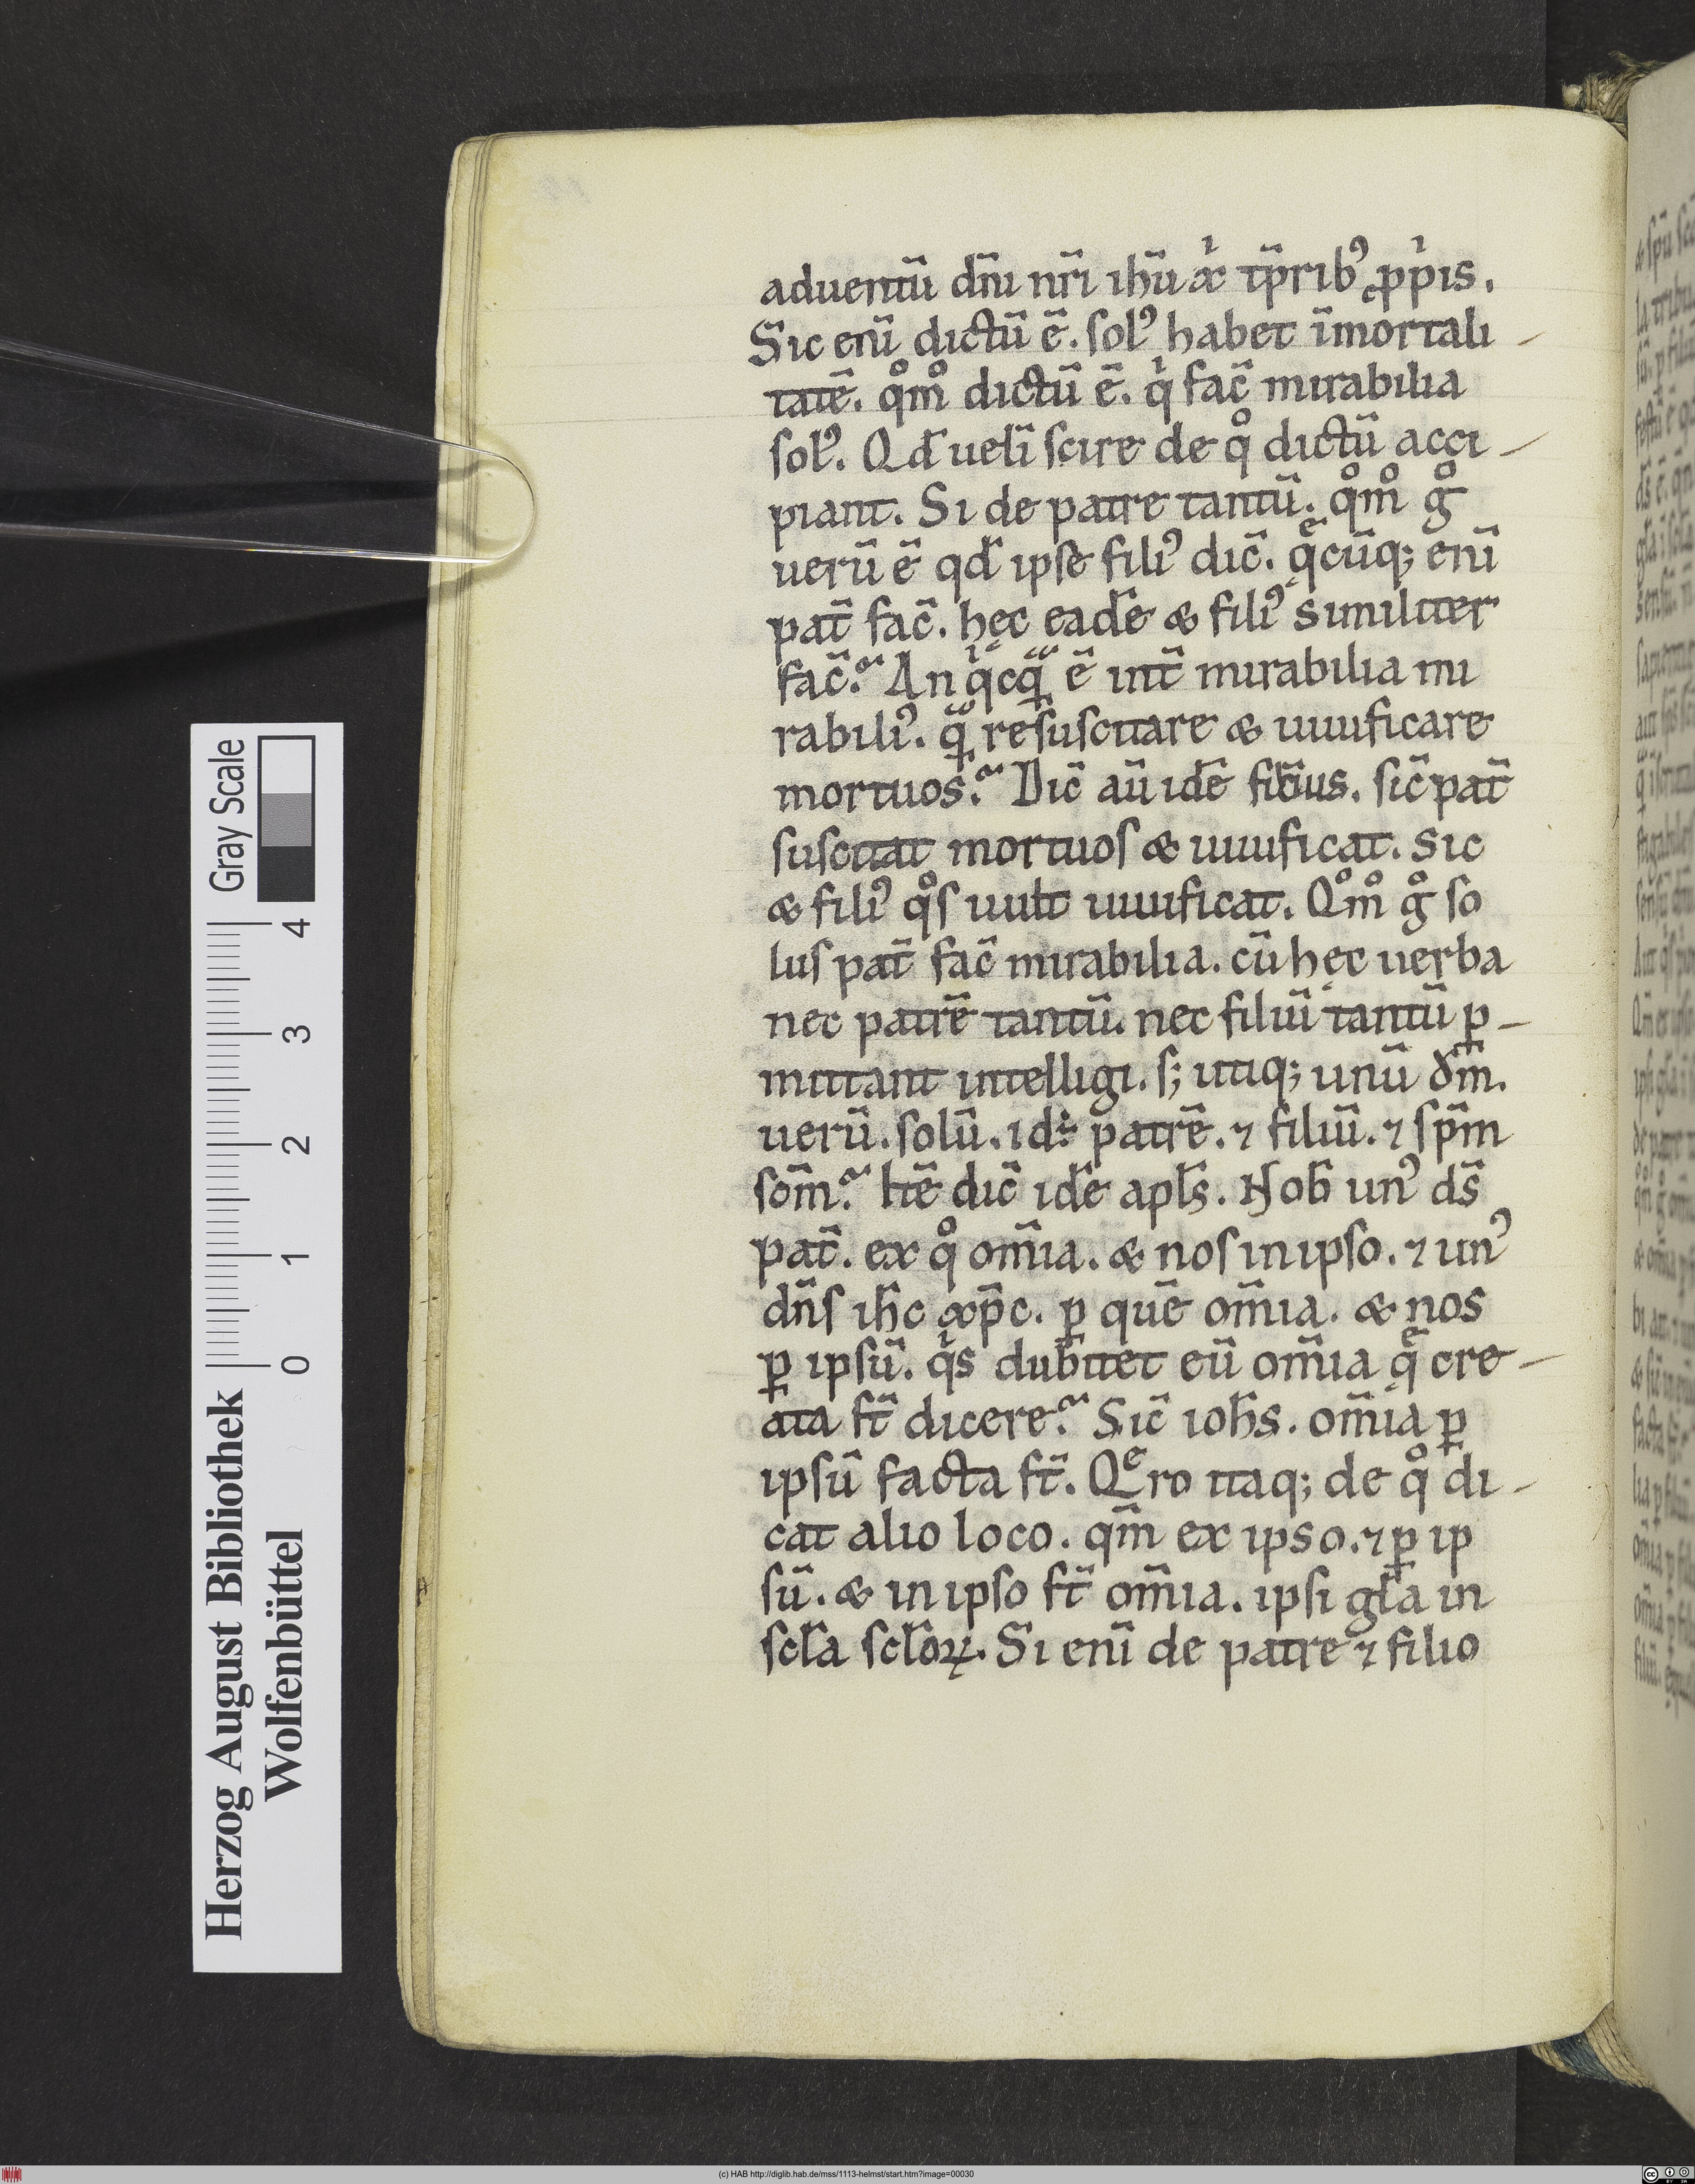 aduentū dn̄i nr̄i ihū xͥ tp̄ribꝰ ꝓpͥis.
Sic enī dictū ē. solꝰ habet īmortali-
tatē. qͦmͦ dictū ē. qͥ fac̄ mirabilia
solꝰ. Qd̄ uelī scire de qͦ dictū acci-
piant. Si de patre tantū. qͦmͦ gͦ
uerū ē qd̄ ipse filiꝰ dic̄. q̄cūq; enī
pat̄ fac̄. hęc eadē & filiꝰ similiter
fac̄? An qͥcqͣ̄ ē int̄ mirabilia mi
rabiliꝰ. qͣ̄ resuscitare & uiuificare
mortuos? Dic̄ aū idē filius. sic̄ pat̄
suscitat mortuos & uiuificat. sic
& filiꝰ qͦs uult uiuificat. Qͦmͦ gͦ so
lus pat̄ fac̄ mirabilia. cū hęc uerba
nec patrē tantū. nec filiū tantū ꝑ-
mittant intelligi. s; utiq; unū dm̄.
uerū. solū. id÷ patrē. ⁊ filiū. ⁊ sp̄m
scm̄? Itē dic̄ idē apls̄. Nob̄ unꝰ ds̄
pat̄. ex qͦ om̄ia. & nos in ipso. ⁊ unꝰ
dn̄s ih̄c xp̄c. ꝑ quē om̄ia. & nos
ꝑ ipsū. qͥs dubitet eū om̄ia q̄ cre-
ata st̄ dicere? Sic̄ ioh̄s. om̄ia ꝑ
ipsū facta st̄. Qͤro itaq; de qͦ di-
cat alio loco. qm̄ ex ipso. ⁊ ꝑ ip
sū. & in ipso st̄ om̄ia. ipsi gl̄a in
scl̄a scl̄oꝝ. Si enī de patre ⁊ filio
Herzog August Bibliothek
Wolfenbüttel
0 1 2 3 4
Gray Scale
(c) HAB http://diglib.hab.de/mss/1113-helmst/start.htm?image=00030